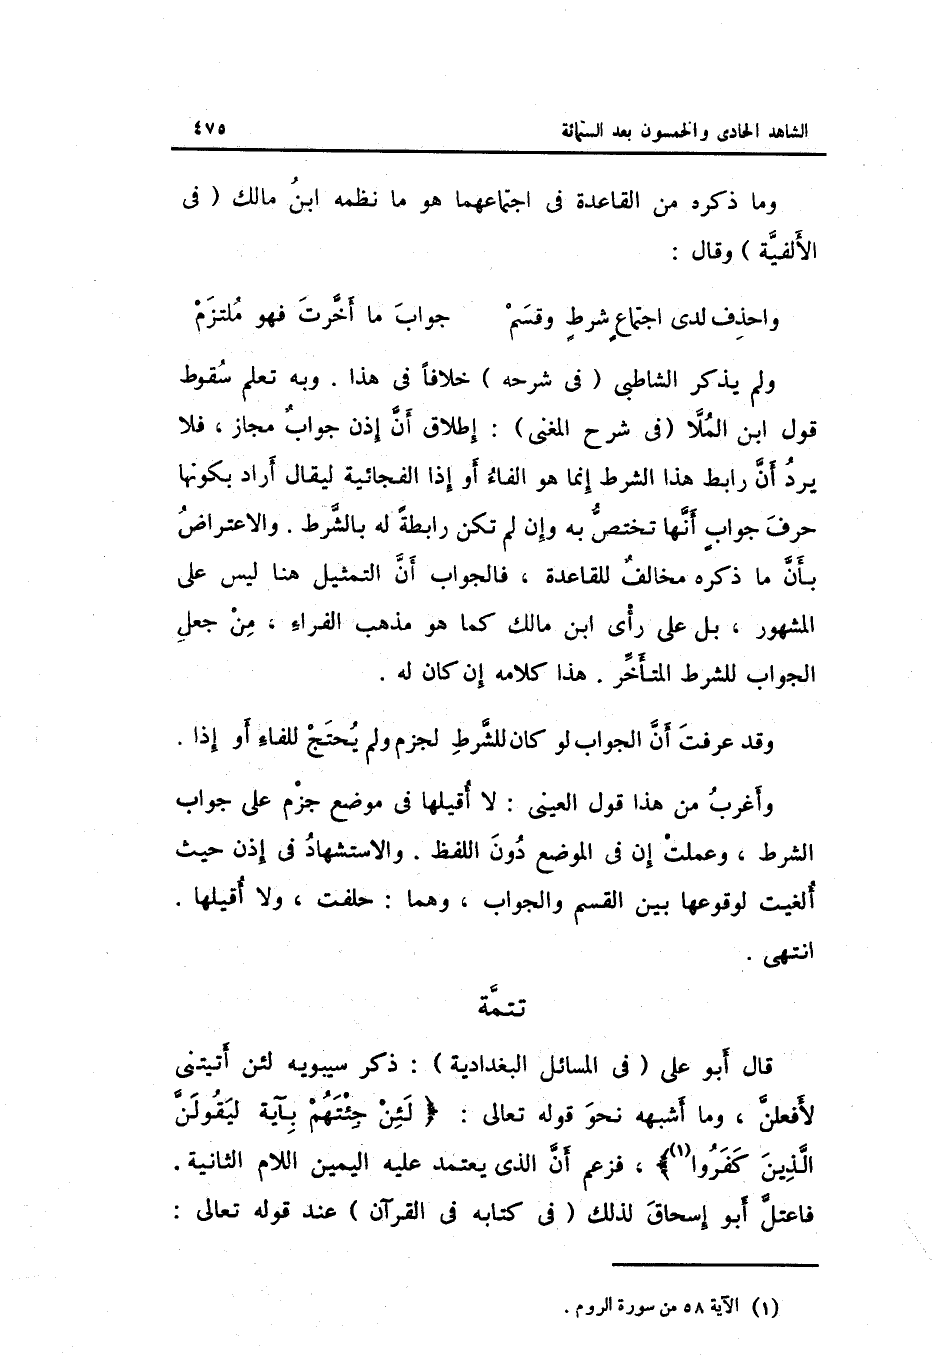 الشاهد الحادى والخمسون بعد الستمائة ٤٧٥
وما ذكره من القاعدة فى اجتماعهما هو ما نظمه ابنُ مالك ( فى
الأَلفيَّة ) وقال :
واحذِف لدى اجتماعِ شرطٍ وقسَمْ جوابَ ما أَخَّرتَ فهو مُلتزَمْ
ولم يذكر الشاطبى ( فى شرحه ) خلافاً فى هذا . وبه تعلم سُقوط
قول ابن المُلَّا (فى شرح المغنى) : إطلاق أَنَّ إذن جوابٌ مجاز ، فلا
يردُ أَنَّ رابط هذا الشرط إنما هو الفاءُ أو إذا الفجائية ليقال أَراد بكونها
حرفَ جوابٍ أَنَّها تختصُّ به وإن لم تكن رابطةً له بالشَّرط . والاعتراضُ
بأَنَّ ما ذكره مخالفٌ للقاعدة ، فالجواب أَنَّ التمثيل هنا ليس على
المشهور ، بل على رأْى ابن مالك كما هو مذهب الفراءِ ، مِنْ جعلِ
الجواب للشرط المتأَخِّر . هذا كلامه إن كان له .
وقد عرفتَ أَنَّ الجواب لو كان للشَّرطِ لجزم ولم يُحتَجْ للفاءِ أو إذا .
وأَغربُ من هذا قول العينى : لا أُقيلها فى موضع جزْم على جواب
الشرط ، وعملتْ إن فى الموضع دُونَ اللفظ . والاستشهادُ فى إذن حيث
أُلغيت لوقوعها بين القسم والجواب ، وهما : حلفت ، ولا أُقيلها .
انتهى .
تتمَّة
قال أَبو على ( فى المسائل البغدادية ) : ذكر سيبويه لئن أَتيتنى
لأَفعلنَّ ، وما أَشبهه نحوَ قوله تعالى : ﴿ لَئِنْ جِئْتَهُمْ بِآية لَيَقُولَنَّ
الَّذِينَ كَفَرُوا(١)﴾ ، فزعم أَنَّ الذى يعتمد عليه اليمين اللام الثانية .
فاعتلَّ أَبو إسحاقَ لذلك ( فى كتابه فى القرآن ) عند قوله تعالى :
(١) الآية ٥٨ من سورة الروم .